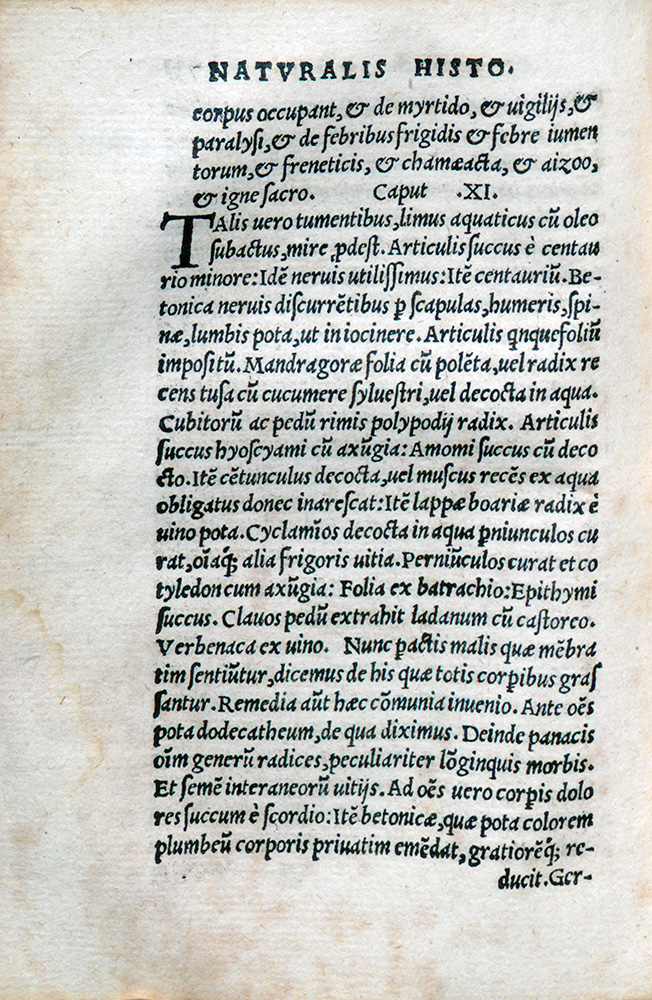 NATVRALIS HISTO.
corpus occupant, & de myrtido, & uigilijs, &
paralysi, & de febribus frigidis & febre iumen
torum, & freneticis, & chamæacta, & aizoo,
& igne sacro. Caput .XI.
TAlis uero tumentibus, limus aquaticus cũ oleo
ſubactus, mire ꝓdeſt. Articulis ſuccus è centau
rio minore: Idẽ neruis utiliſſimus: Itẽ centauriũ. Be-
tonica neruis diſcurrẽtibus ꝑ ſcapulas, humeris, ſpi-
næ, lumbis pota, ut in iocinere. Articulis qnquefoliũ
impoſitũ. Mandragoræ folia cũ polẽta, uel radix re
cens tuſa cũ cucumere ſylueſtri, uel decocta in aqua.
Cubitorũ ac pedũ rimis polypodij radix. Articulis
ſuccus hyoſcyami cũ axũgia: Amomi ſuccus cũ deco
cto. Itẽ cẽtunculus decocta, uel muſcus recẽs ex aqua
obligatus donec inareſcat: Itẽ lappæ boariæ radix è
uino pota. Cyclamĩos decocta in aqua ꝑniunculos cu
rat, oĩaq̃; alia frigoris uitia. Perniũculos curat et co
tyledon cum axũgia: Folia ex batrachio: Epithymi
ſuccus. Clauos pedũ extrahit ladanum cũ caſtoreo.
Verbenaca ex uino. Nunc ꝑactis malis quæ mẽbra
tim ſentiũtur, dicemus de his quæ totis corꝑibus graſ
ſantur. Remedia aũt hæc cõmunia inuenio. Ante oẽs
pota dodecatheum, de qua diximus. Deinde panacis
oĩm generũ radices, peculiariter lõginquis morbis.
Et ſemẽ interaneorũ uitijs. Ad oẽs uero corꝑis dolo
res ſuccum è ſcordio: Itẽ betonicæ, quæ pota colorem
plumbeũ corporis priuatim emẽdat, gratiorẽq̃; re-
ducit. Ger-